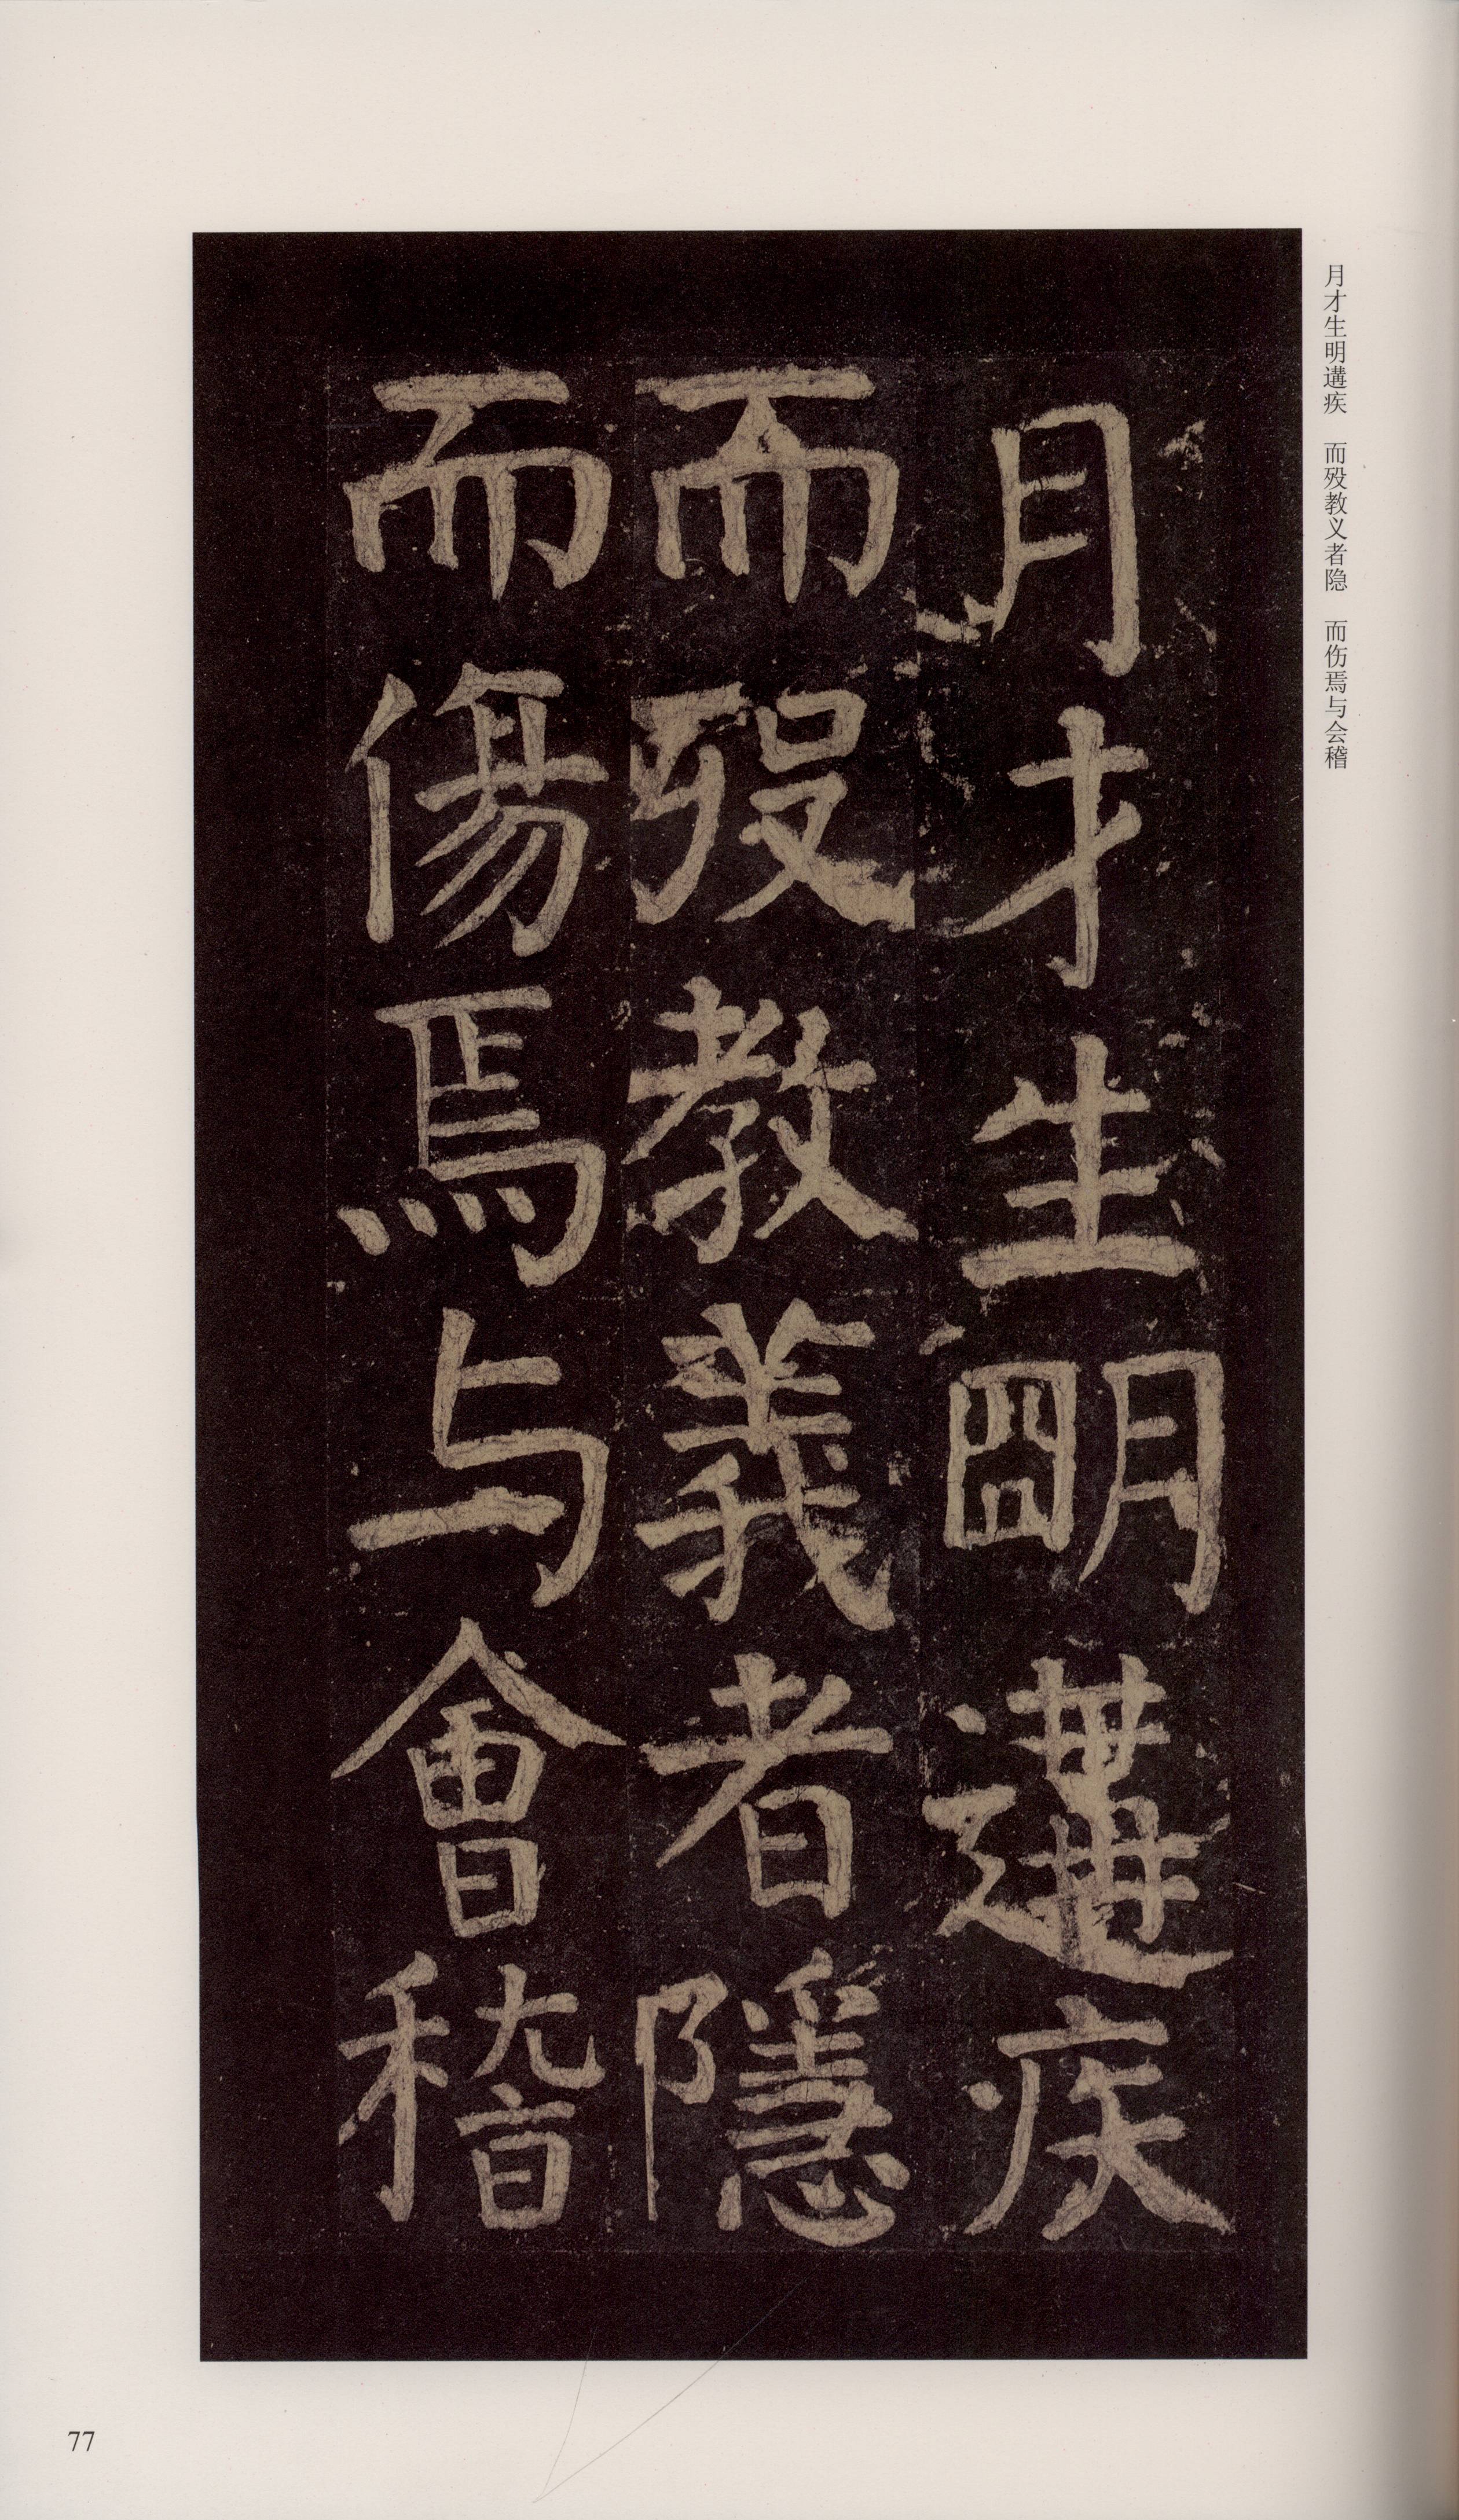 月才生明遘疾　而歿教义者隐　而伤焉与会稽
月才生朙遘疾
而歿教義者隱
而傷焉与會稽
77